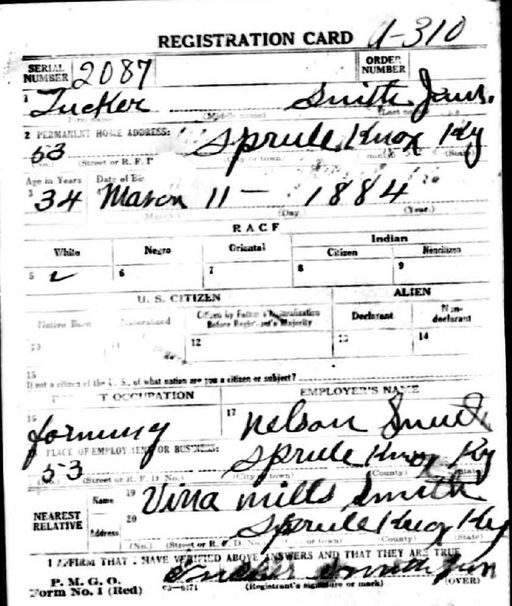 REGISTRATION CARD A-310
SERIAL NUMBER 2087 ORDER NUMBER
1 Tucker Smith Junr.
(Middle name)
2 PERMANENT HOME ADDRESS:
53 Sprule Knox Ky
(Street or R. F. D (City or town) (County) (State)
Age in Years Date of Birth
3 34 4 March 11 - 1884
(Day) (Year.)
RACE
White Negro Oriental Indian
Citizen Noncitizen
5 6 7 8 9
U. S. CITIZEN ALIEN
Native Born Naturalized Citizen by Father's Naturalization Before Registrant's Majority Declarant Non-declarant
10 11 12 13 14
15
If not a citizen of the U. S., of what nation are you a citizen or subject?
T OCCUPATION EMPLOYER'S NAME
16 farming 17 Nelson Smith
PLACE OF EMPLOYMENT OR BUSINESS:
53 Sprule Knox Ky
(No.) (Street or R. F. D. No.) (City or town) (County) (State)
NEAREST RELATIVE
Name 19 Vina Mills Smith
Address 20 Sprule Knox Ky
(No.) (Street or R. F. D. No.) (City or town) (County) (State)
I AFFIRM THAT I HAVE VERIFIED ABOVE ANSWERS AND THAT THEY ARE TRUE
P. M. G. O.
Form No. 1 (Red) Tucker Smith Jun
(Registrant's signature or mark) (OVER)